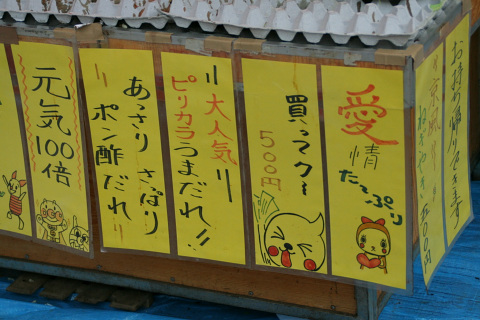 元気100倍
あっさり さっぱり
ポン酢だれ
大人気
ピリカラうまだれ!!
買ってクー
500円
愛情
たっぷり
お持ち帰りできます